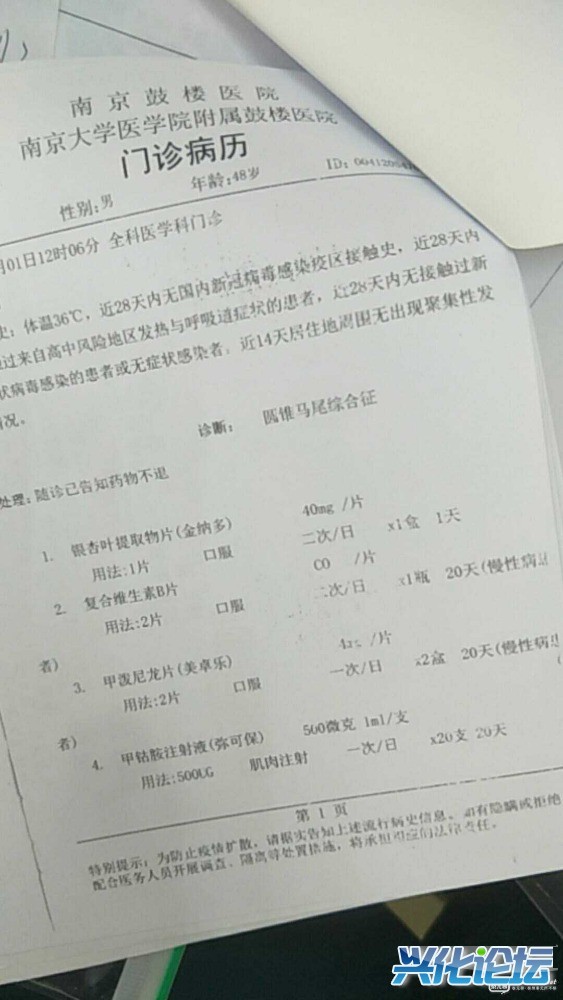 南京鼓楼医院
南京大学医学院附属鼓楼医院
门诊病历
性别:男 年龄:48岁 ID: 0041205476
月01日12时06分 全科医学科门诊
史: 体温36℃, 近28天内无国内新冠病毒感染疫区接触史, 近28天内
过来自高中风险地区发热与呼吸道症状的患者, 近28天内无接触过新
状病毒感染的患者或无症状感染者; 近14天居住地周围无出现聚集性发
情况。
诊断: 圆锥马尾综合征
处理: 随诊已告知药物不退
1. 银杏叶提取物片(金纳多) 40mg /片
用法:1片 口服 二次/日 x1盒 1天
2. 复合维生素B片 CO /片
用法:2片 口服 二次/日 x1瓶 20天(慢性病患
者)
3. 甲泼尼龙片(美卓乐) 4mg /片
用法:2片 口服 一次/日 x2盒 20天(慢性病患
者)
4. 甲钴胺注射液(弥可保) 500微克 1ml/支
用法:500UG 肌肉注射 一次/日 x20支 20天
第 1 页
特别提示: 为防止疫情扩散, 请据实告知上述流行病史信息, 如有隐瞒或拒绝
配合医务人员开展调查、隔离等处置措施, 将承担相应的法律责任。
兴化论坛